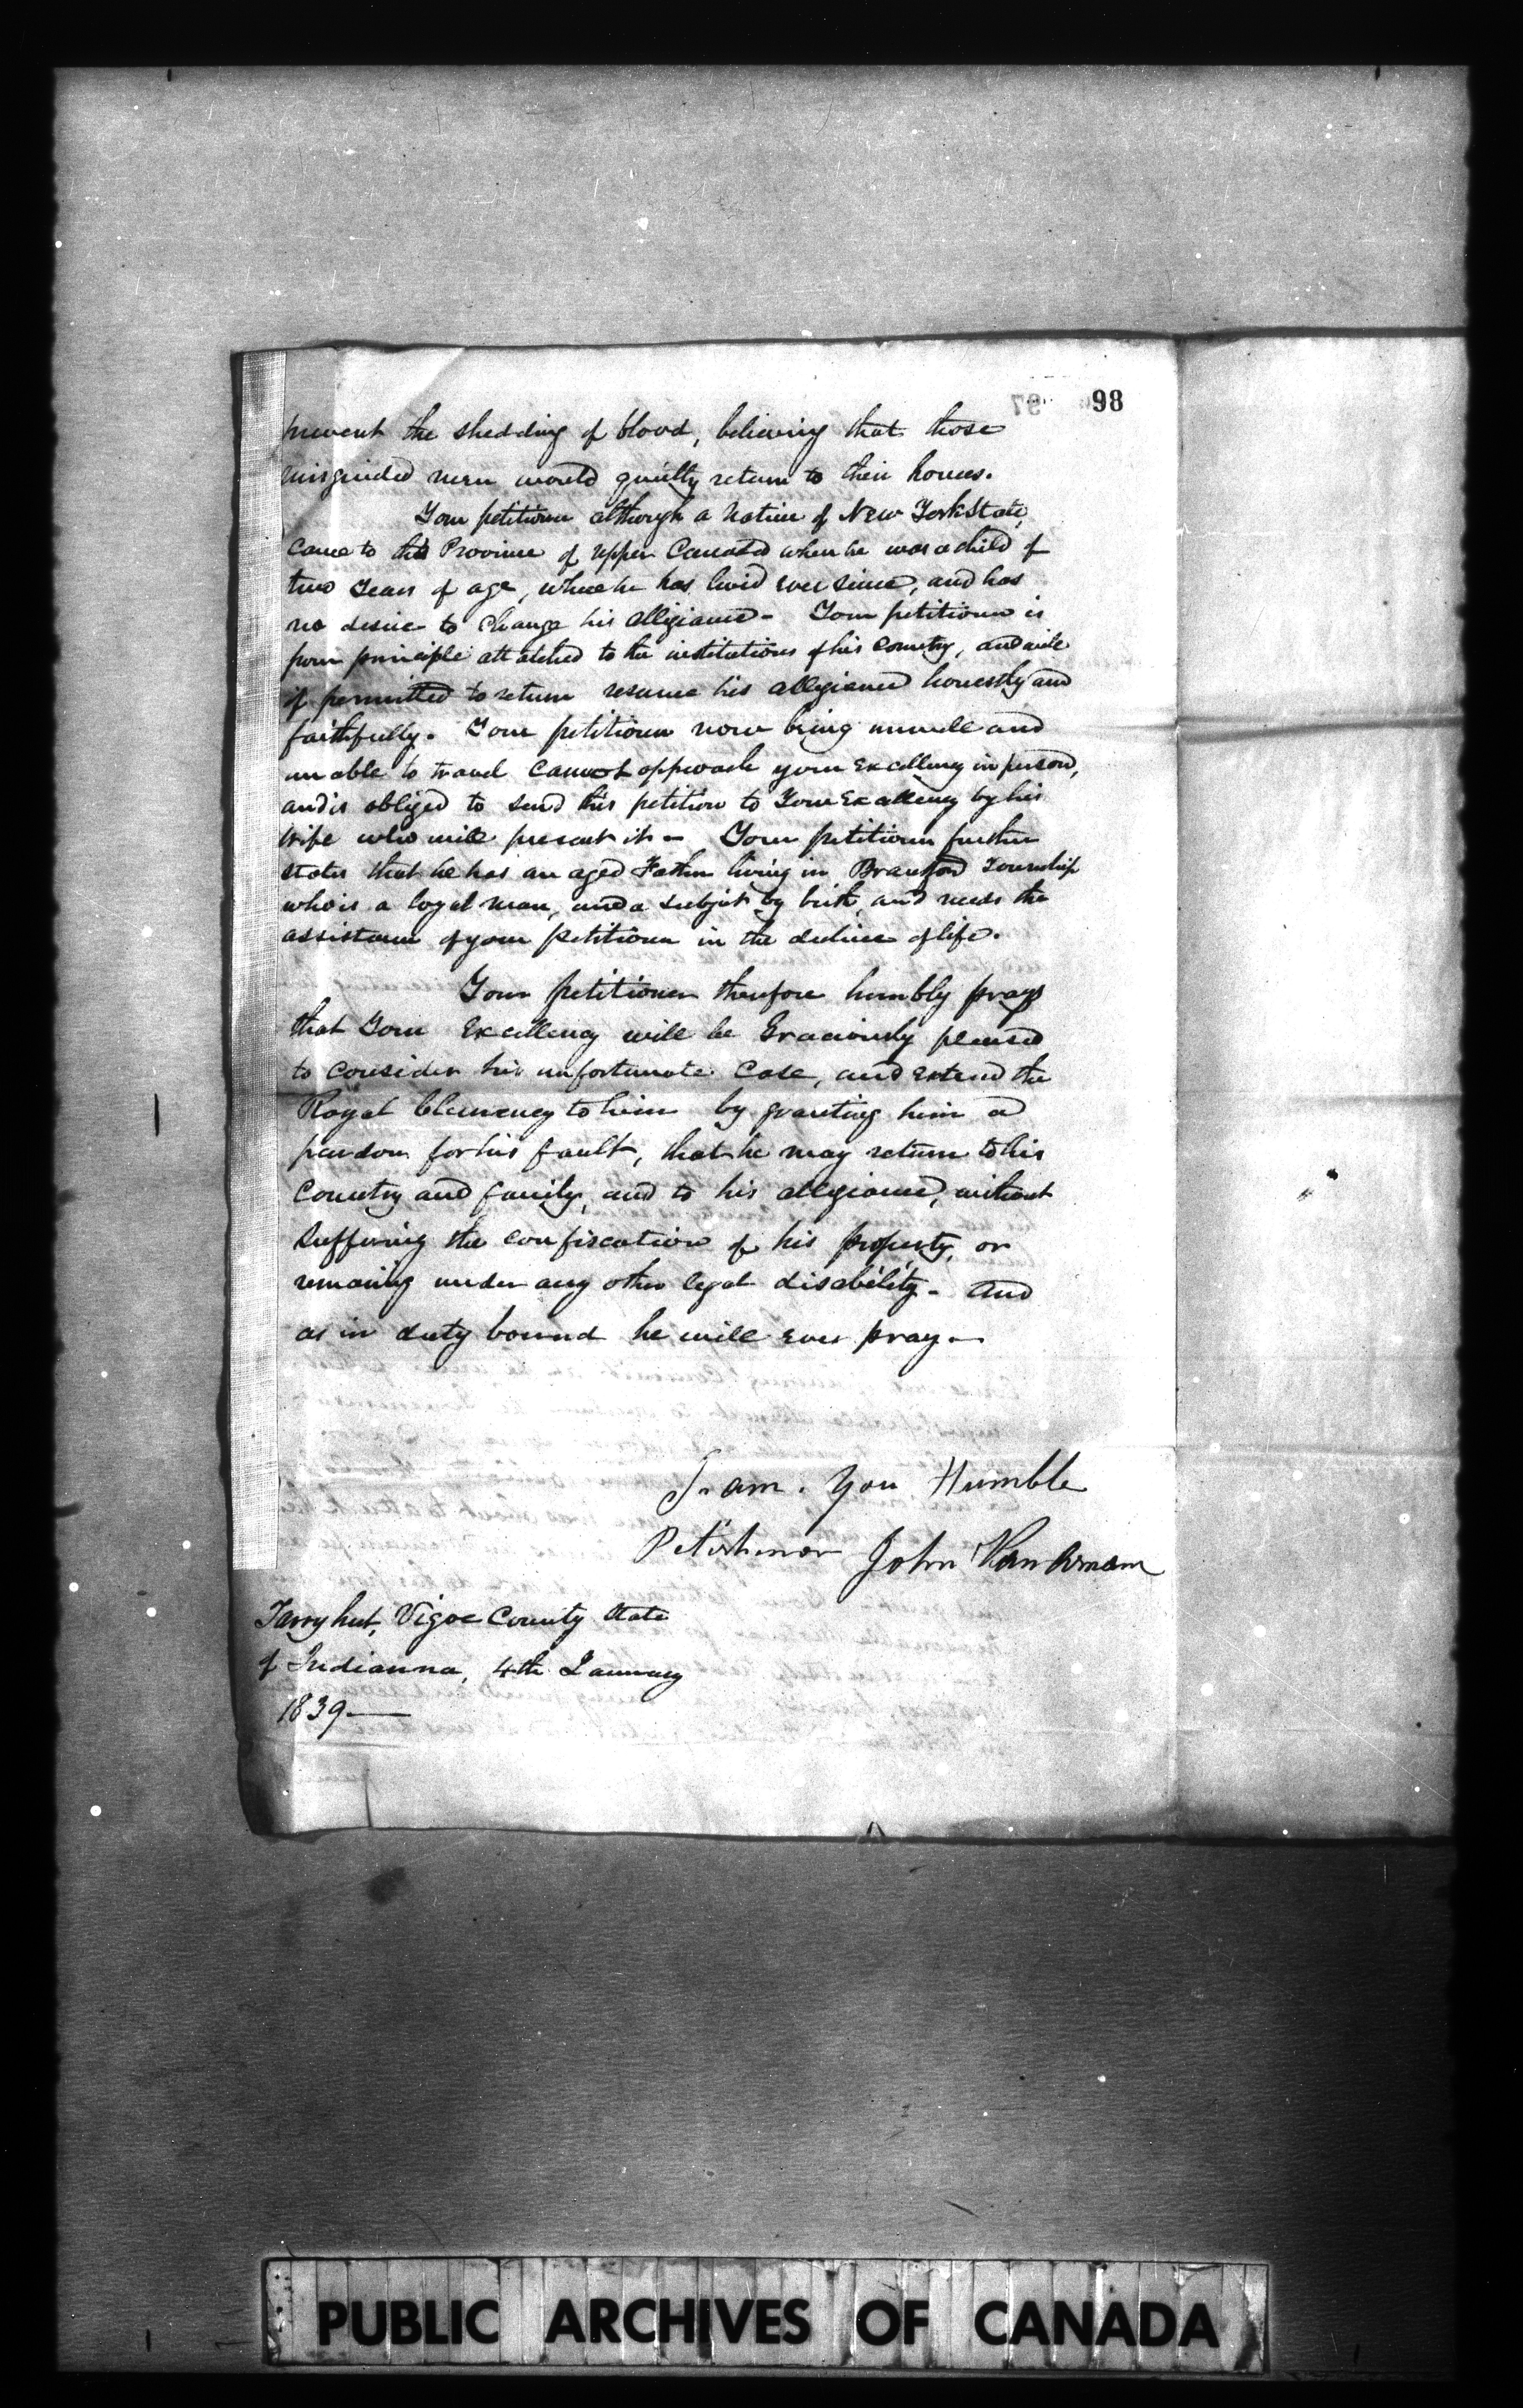 98
prevent the shedding of blood, believing that those
misguided men would quietly return to their homes.
Your petitioner although a native of New York State,
came to the Province of upper Canada when he was a child of
two years of age, where he has lived ever since, and has
no desire to change his allegiance - Your petitioner is
from principle attatched to the institutions of his country, and will
if permitted to return resume his allegiance honestly and
faithfully. Your petitioner now being unwell and
unable to travel cannot approach your Excellency in person,
and is obliged to send this petition to Your Excellency by his
wife who will present it - Your petitioner further
states that he has an aged Father living in Brantford Township
who is a loyal man, and a subject by birth, and needs the
assistance of your petitioner in the decline of life.
Your petitioner therefore humbly prays
that Your Excellency will be Graciously pleased
to consider his unfortunate case, and extend the
Royal Clemency to him by granting him a
pardon for his fault, that he may return to his
Country and family, and to his allegiance, without
suffering the confiscation of his property, or
remaing under any other legal disability - And
as in duty bound he will ever pray -
I am . you Humble
Petishnor John Van Arnam
Tarryhut, Vigoe County State
of Indianna, 4th January
1839
PUBLIC ARCHIVES OF CANADA